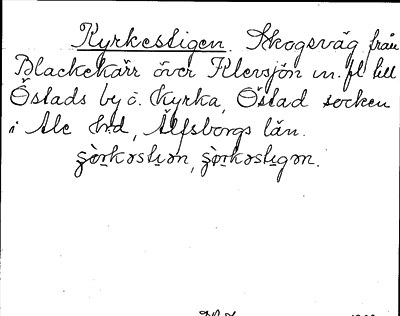 Kyrkestigen. Skogsväg från
Blackekärr över Klevsjön m. fl till
Östads by o. kyrka, Östad socken
i Ale hd, Älfsborgs län.